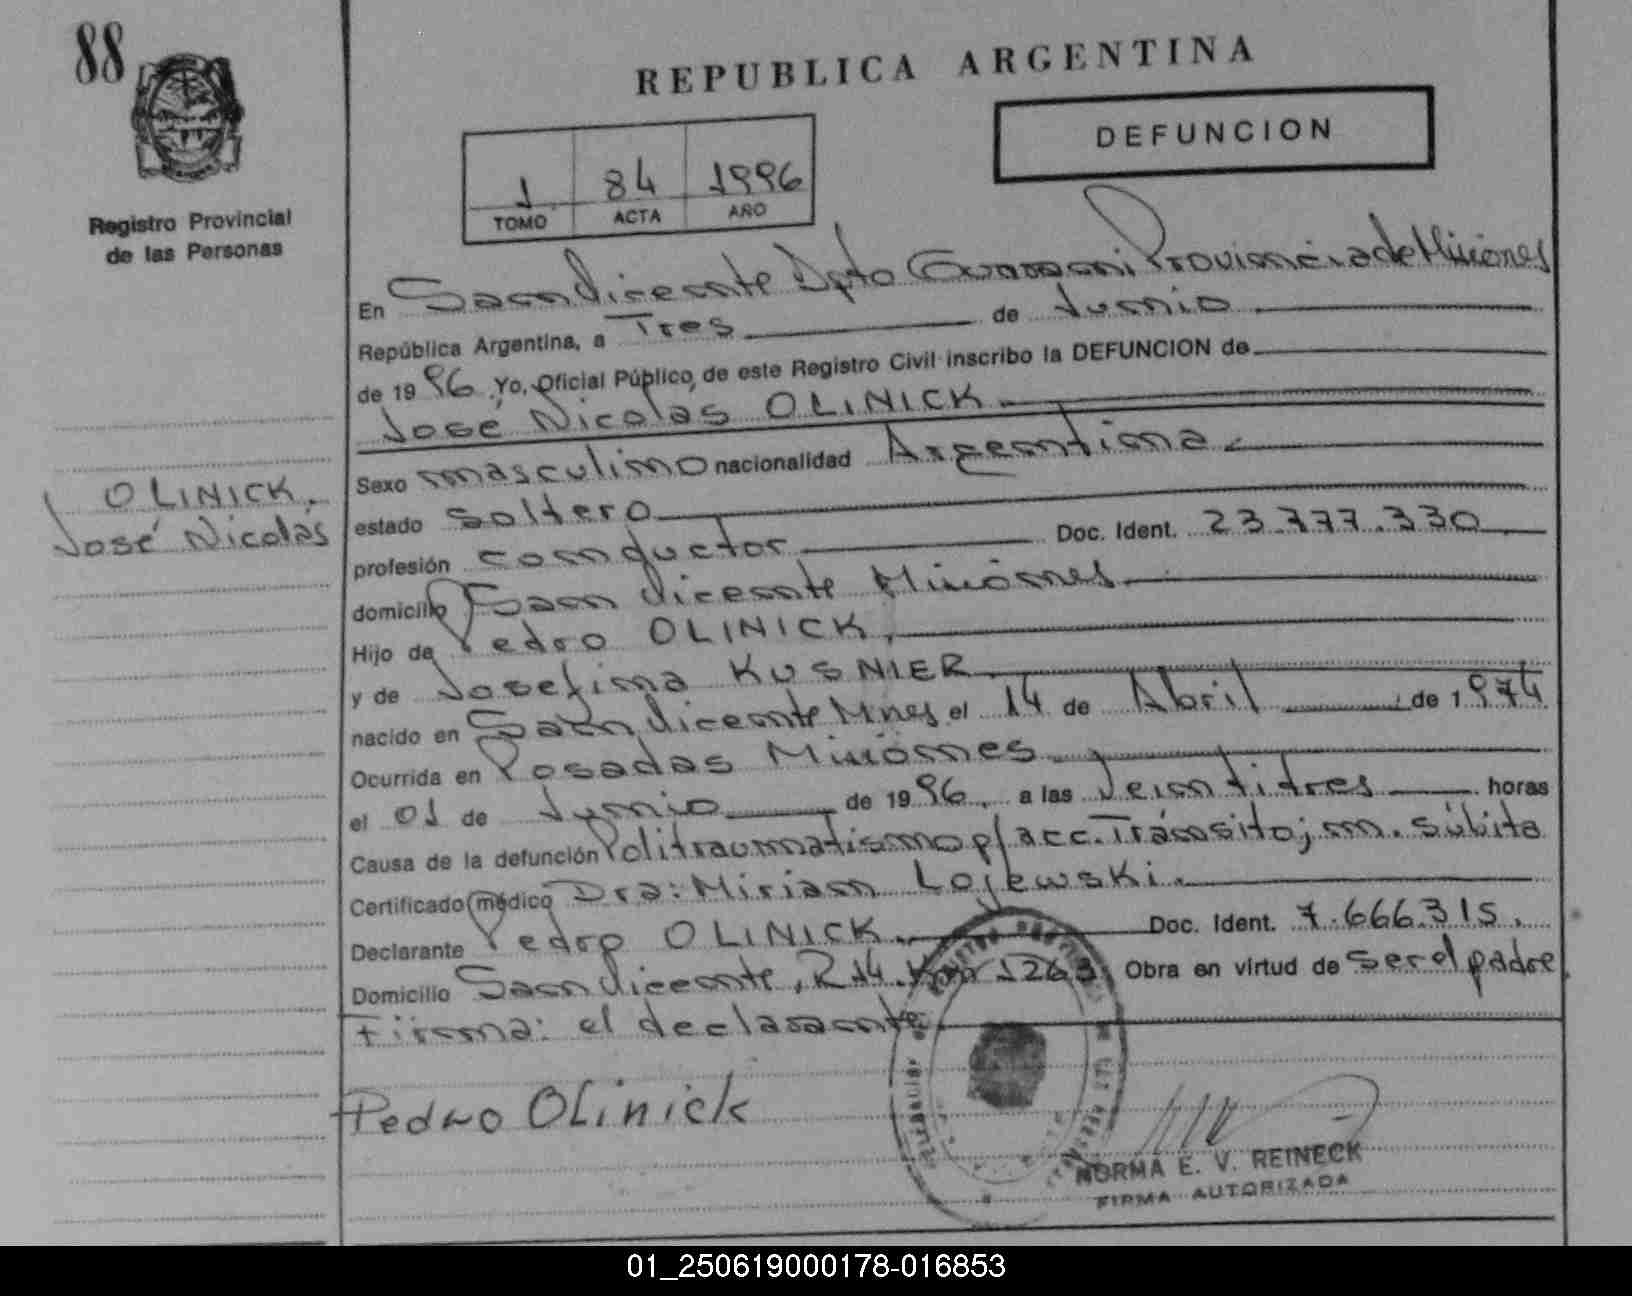 88
REPUBLICA ARGENTINA
DEFUNCION
1 84 1996
TOMO ACTA AÑO
Registro Provincial
de las Personas
En San Vicente Dpto Guarani Provincia de Misiones
República Argentina, a Tres de Junio
de 1996. Yo, Oficial Público, de este Registro Civil inscribo la DEFUNCION de
José Nicolás OLINICK
OLINICK,
José Nicolás
Sexo masculino nacionalidad Argentina
estado soltero
profesión conductor Doc. Ident. 23.777.330
domicilio San Vicente Misiones
Hijo de Pedro OLINICK,
y de Josefina KUSNIER
nacido en San Vicente Mnes el 14 de Abril de 1974
Ocurrida en Posadas Misiones
el 01 de Junio de 1996, a las Veintitres horas
Causa de la defunción Politraumatismo p/acc. Tránsito; m. súbita
Certificado médico Dra: Miriam Lojewski.
Declarante Pedro OLINICK. Doc. Ident. 7.666.315.
Domicilio San Vicente, R.14. Km 1263 Obra en virtud de ser el padre
Firma: el declarante
Pedro OLinick
NORMA E. V. REINECK
FIRMA AUTORIZADA
01_250619000178-016853